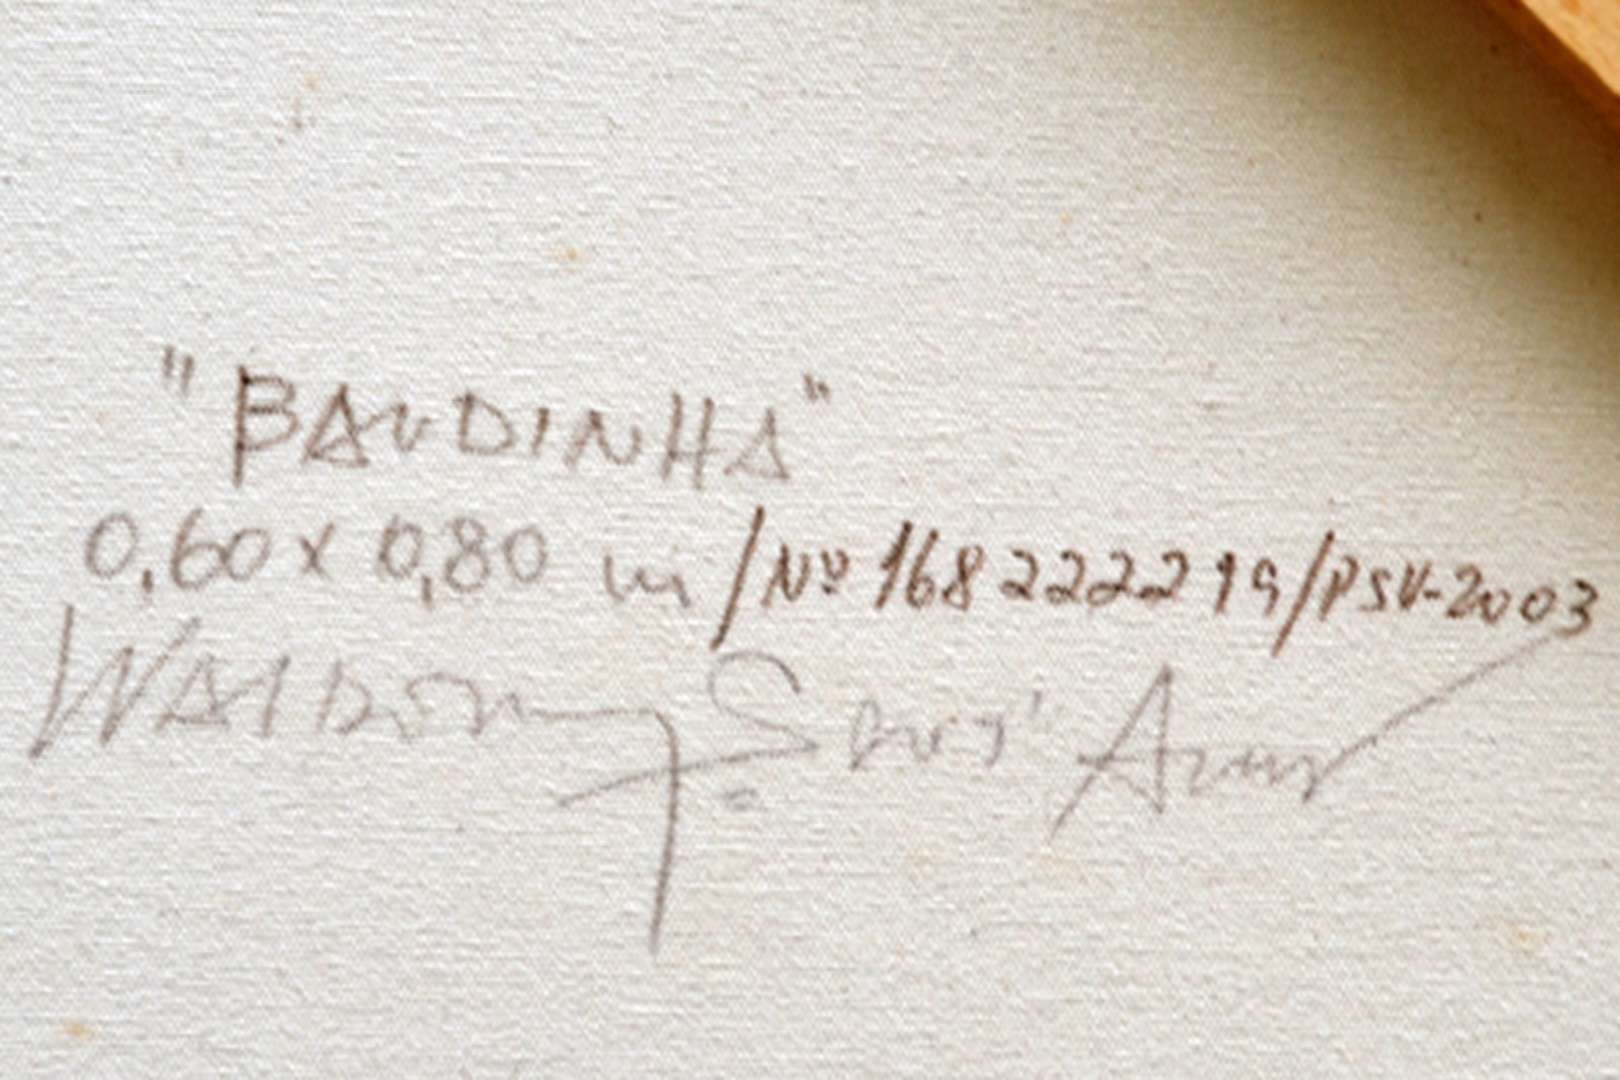 "BANDINHA"
0,60 x 0,80 m /Nº 168 2222 19/PSV-2003
WALDOMIRO